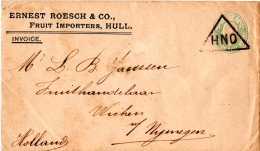 ERNEST ROESCH & CO.,
FRUIT IMPORTERS, HULL.
INVOICE.
HNO
Mr L. B. Janssen
Fruithandelaar
Wichen
b/ Nymegen
Holland